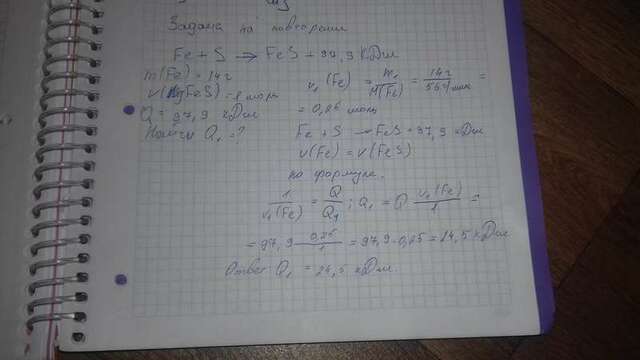 Задача на повторение
Fe + S → FeS + 97,9 кДж
m(Fe) = 14 г
ν(FeS) = 1 моль
Q = 97,9 кДж
Найти Q₁ = ?
ν₁(Fe) = m₁/M(Fe) = 14 г/56 г/моль =
= 0,25 моль
Fe + S → FeS + 97,9 кДж
ν(Fe) = ν(FeS)
по формуле.
1/ν₁(Fe) = Q/Q₁ ; Q₁ = Q · ν₁(Fe)/1 =
= 97,9 · 0,25/1 = 97,9 · 0,25 = 24,5 кДж
Ответ Q₁ = 24,5 кДж.